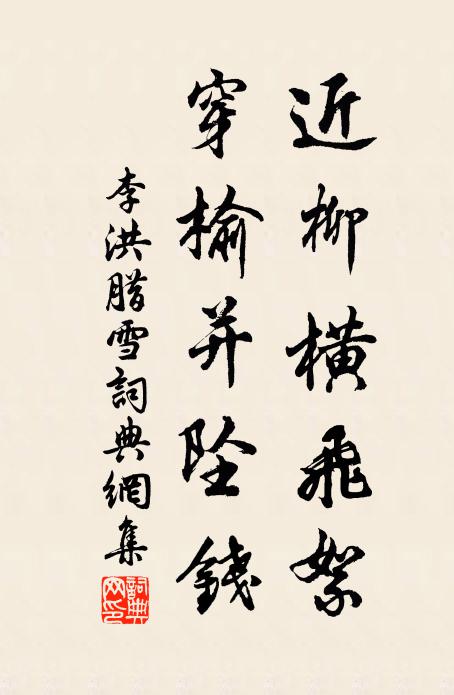 近柳橫飛絮
穿榆并墜錢
李洪腊雪詞典網集
詞典网印